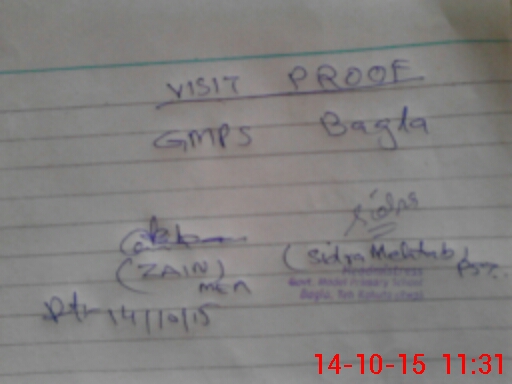 VISIT PROOF
GMPS Bagla
(ZAIN) (Sidra Mehtab) PST
MEA Headmistress
Govt. Model Primary School
Dt:- 14/10/15 Bagla,
14-10-15 11:31